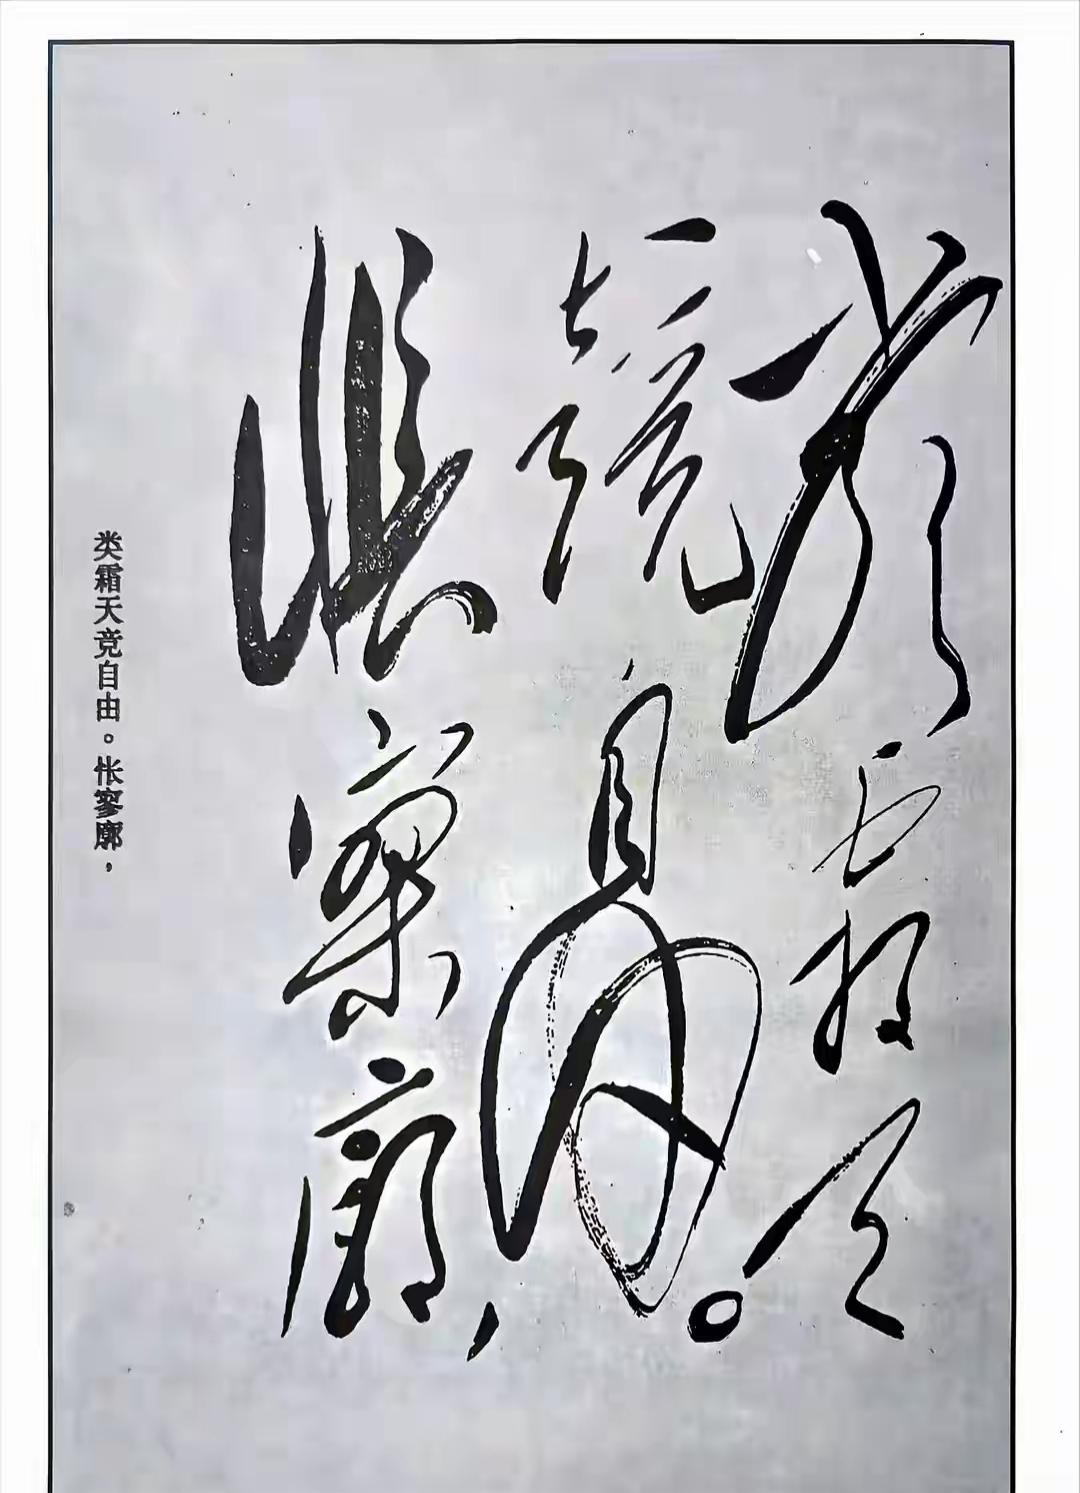 類霜天
競自由。
悵寥廓，
类霜天竞自由。怅寥廓，